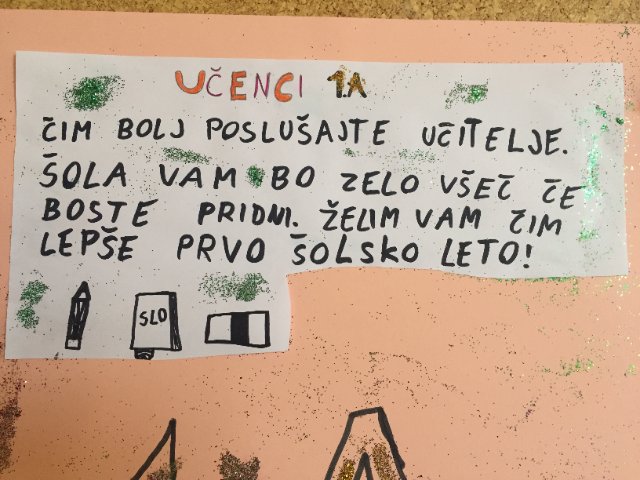 UČENCI 1.A
ČIM BOLJ POSLUŠAJTE UČITELJE.
ŠOLA VAM BO ZELO VŠEČ ČE
BOSTE PRIDNI. ŽELIM VAM ČIM
LEPŠE PRVO ŠOLSKO LETO!
SLO